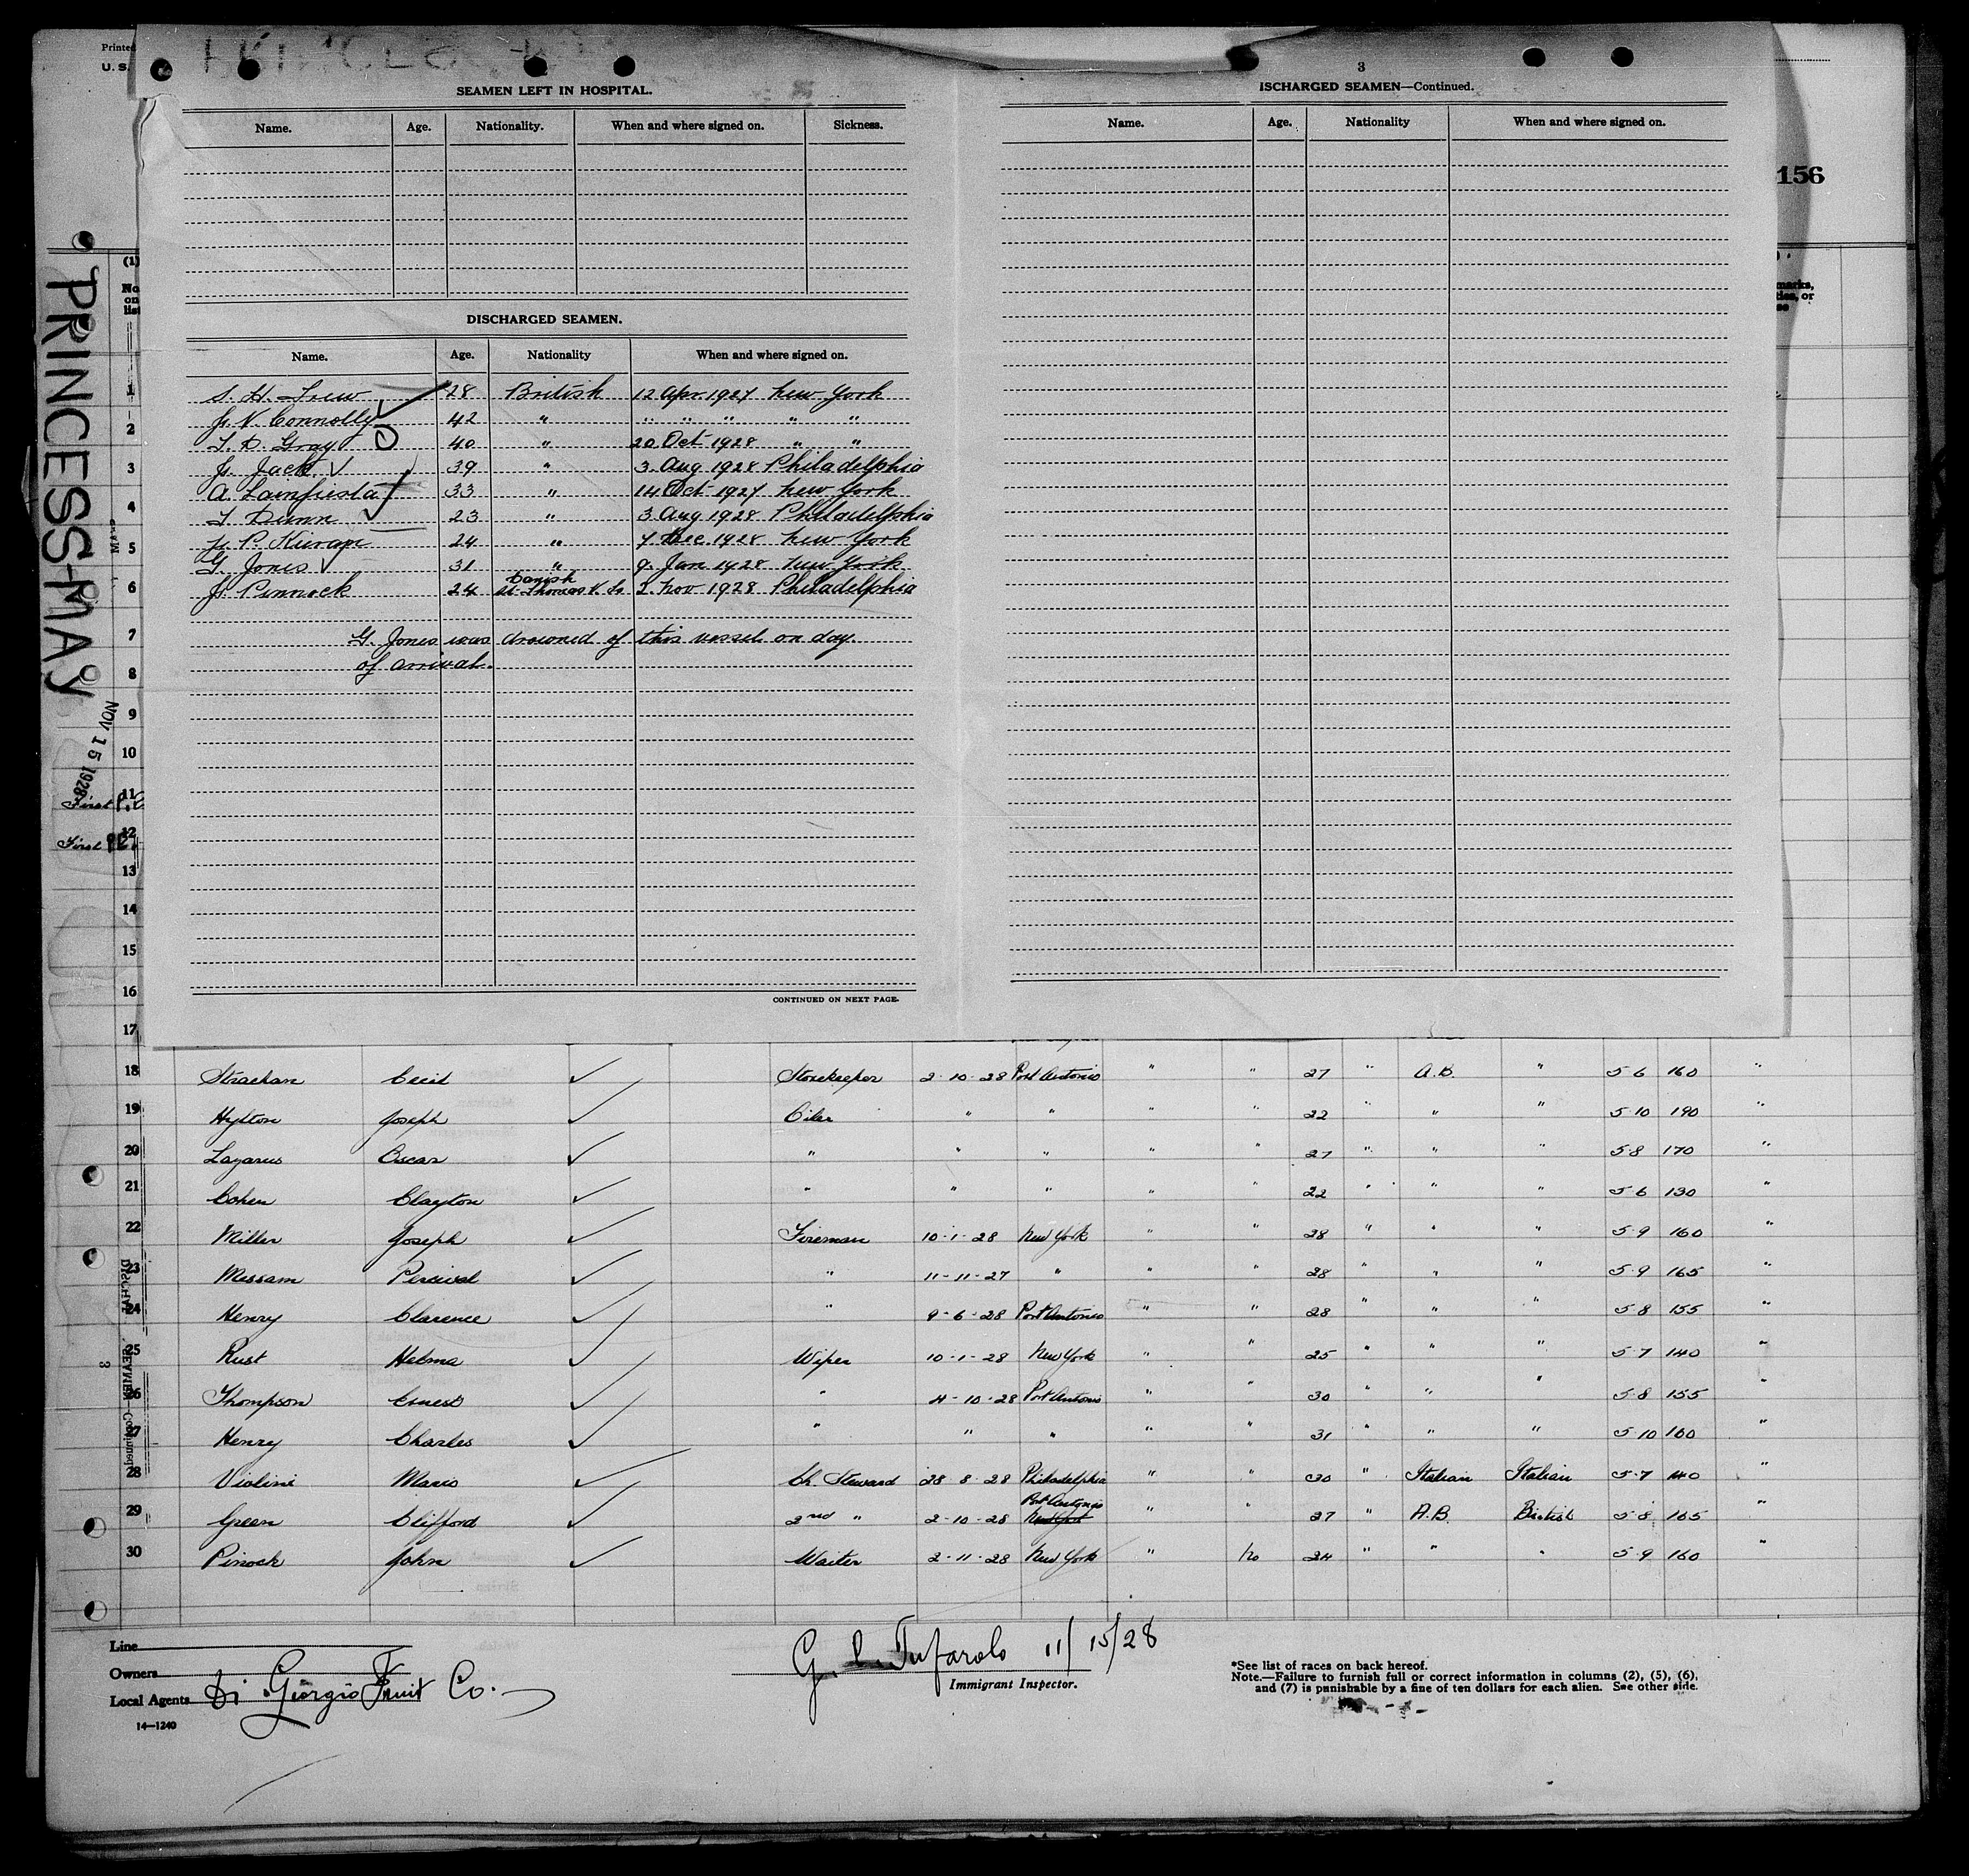 Printed
U. S.
3
SEAMEN LEFT IN HOSPITAL.
Name. Age. Nationality. When and where signed on. Sickness.
DISCHARGED SEAMEN.
Name. Age. Nationality When and where signed on.
S. H. Trew 28 British 12 Apr. 1927 New York
J. V. Connolly 42 " " " " " "
T. D. Gray 40 " 20 Oct 1928 " "
J. Jack 39 " 3 Aug 1928 Philadelphia
A. Lainfiesta 33 " 14 Oct 1927 New York
T Dunn 23 " 3 Aug 1928 Philadelphia
J. P. Kieran 24 " 7 Dec. 1928 New York
G. Jones 31 " 9. Jan 1928 New York
J. Pinnock 24 Danish St. Thomas V. Is 2. Nov 1928 Philadelphia
G. Jones was drowned of this vessel on day
of arrival.
CONTINUED ON NEXT PAGE.
ISCHARGED SEAMEN—Continued.
Name. Age. Nationality When and where signed on.
156
marks,
ties, or
PRINCESS-MAY
NOV 15 1928
(1)
No.
on
list
1
2
3
4
5
6
7
8
9
10
11
12
13
14
15
16
17
First
First
18 Strachan Cecil Storekeeper 2-10-28 Port Antonio " " 27 " A.B. " 5 6 160 "
19 Hylton Joseph Oiler " " " " 22 " " " 5 10 190 "
20 Lazarus Oscar " " " " " 27 " " " 5 8 170 "
21 Cohen Clayton " " " " " 22 " " " 5 6 130 "
22 Miller Joseph Fireman 10-1-28 New York " " 38 " " " 5 9 160 "
23 Messam Percival " 11-11-27 " " " 28 " " " 5 9 165 "
24 Henry Clarence " 9-6-28 Port Antonio " " 28 " " " 5 8 155 "
25 Rust Helma Wiper 10-1-28 New York " " 25 " " " 5 7 140 "
26 Thompson Ernest " 4-10-28 Port Antonio " " 30 " " " 5 8 155 "
27 Henry Charles " " " " " 31 " " " 5 10 160 "
28 Violini Mario Ch. Steward 28 8-28 Philadelphia " " 30 " Italian Italian 5-7 140 "
29 Green Clifford 2nd " 2-10-28 Port Antonio New York " " 27 " A.B. British 5 8 165 "
30 Pinock John Waiter 2-11-28 New York " No 24 " " " 5 9 160 "
Line
Owners
Local Agents Di Giorgio Fruit Co.
14—1240
G. C. Tufarolo 11/15/28
Immigrant Inspector.
*See list of races on back hereof.
Note.—Failure to furnish full or correct information in columns (2), (5), (6),
and (7) is punishable by a fine of ten dollars for each alien. See other side.